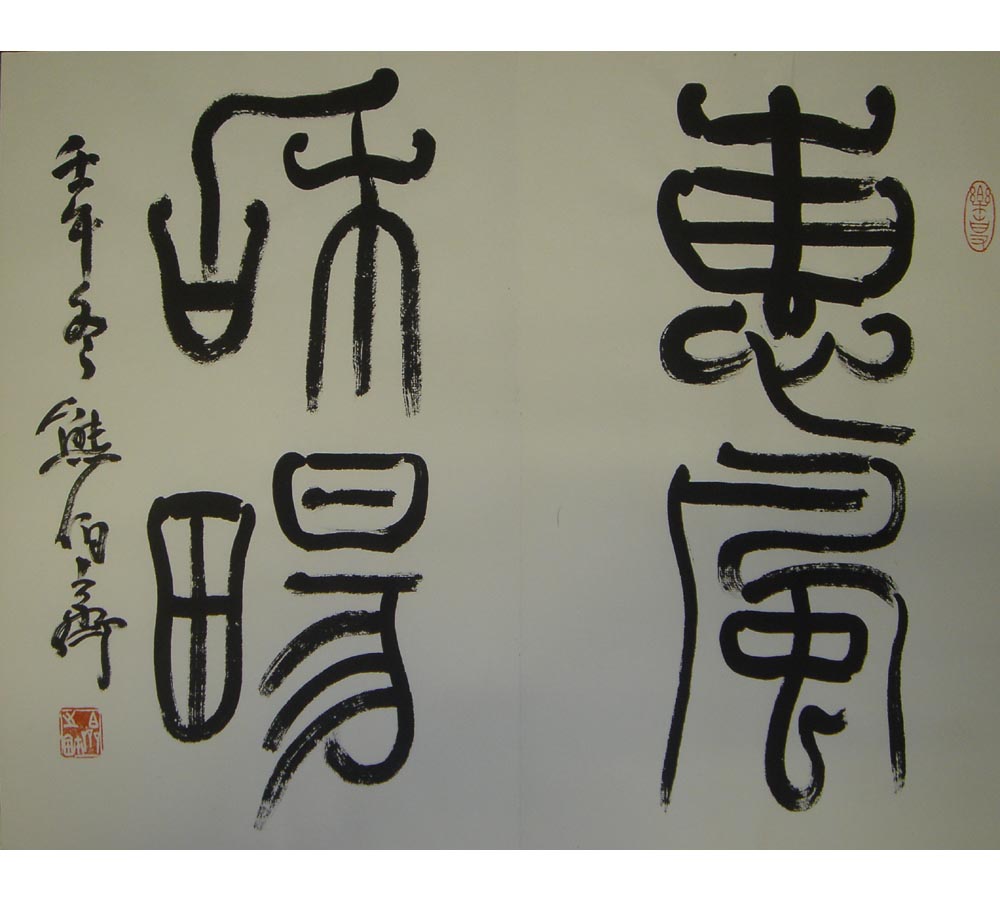 惠風
和暢
壬午冬熊伯齊